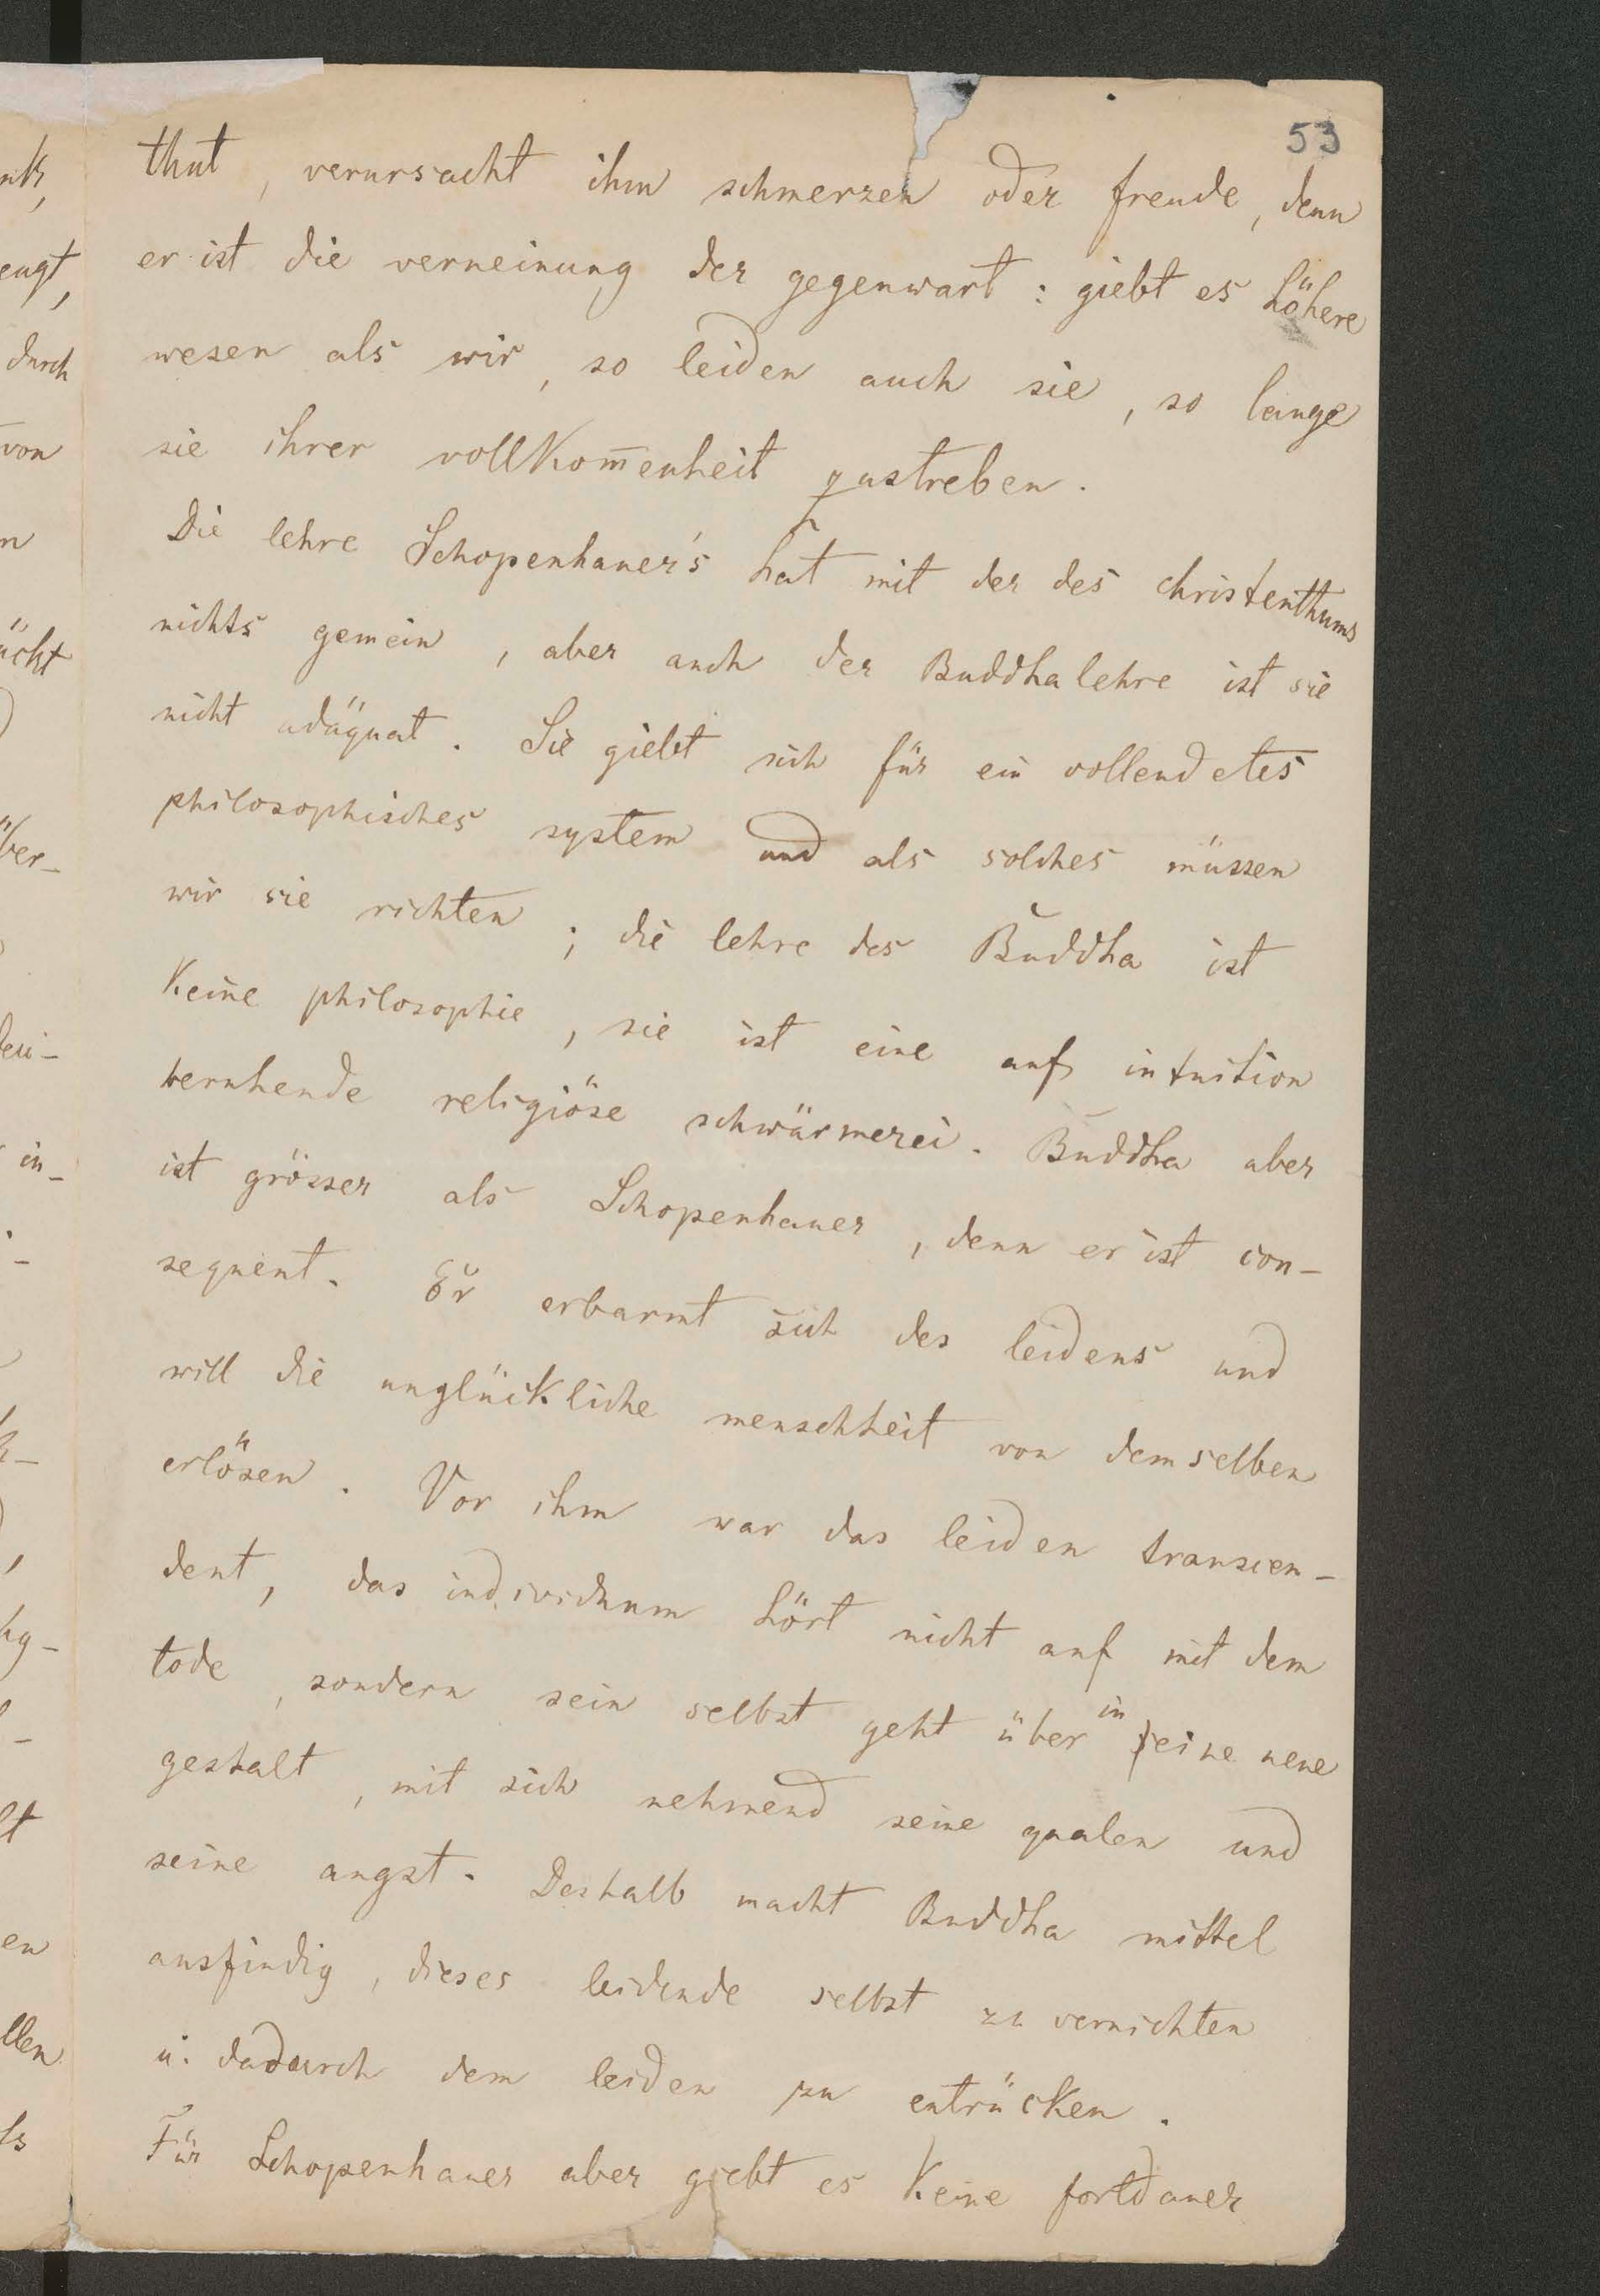 53
that, verursacht ihm schmerzen oder freude, denn
er ist die verneinung der gegenwart: giebt es höhere
wesen als wir, so leiden auch sie, so lange
sie ihrer vollkom̅enheit zustreben.
Die lehre Schopenhauer's hat mit der des christenthums
nichts gemein, aber auch der Buddhalehre ist sie
nicht adäquat. Sie giebt sich für ein vollendetes
philosophisches system und als solches müssen
wir sie richten; die lehre des Buddha ist
keine philosophie, sie ist eine auf intuition
beruhende religiöse schwärmerei. Buddha aber
ist grösser als Schopenhauer, denn er ist con-
sequent. Er erbarmt sich des leidens und
will die unglückliche menschheit von demselben
erlösen. Vor ihm war das leiden transcen-
dent, das individuum hört nicht auf mit dem
tode, sondern sein selbst geht über in eine neue
gestalt, mit sich nehmend seine qualen und
seine angst. Deshalb macht Buddha mittel
ausfindig, dieses leidende selbst zu vernichten
u. dadurch dem leiden zu entrücken.
Für Schopenhauer aber giebt es keine fortdauer
durch
von